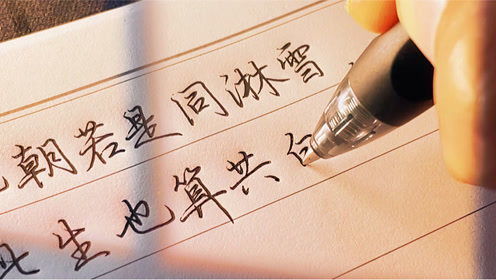 朝若是同淋雪
生也算共